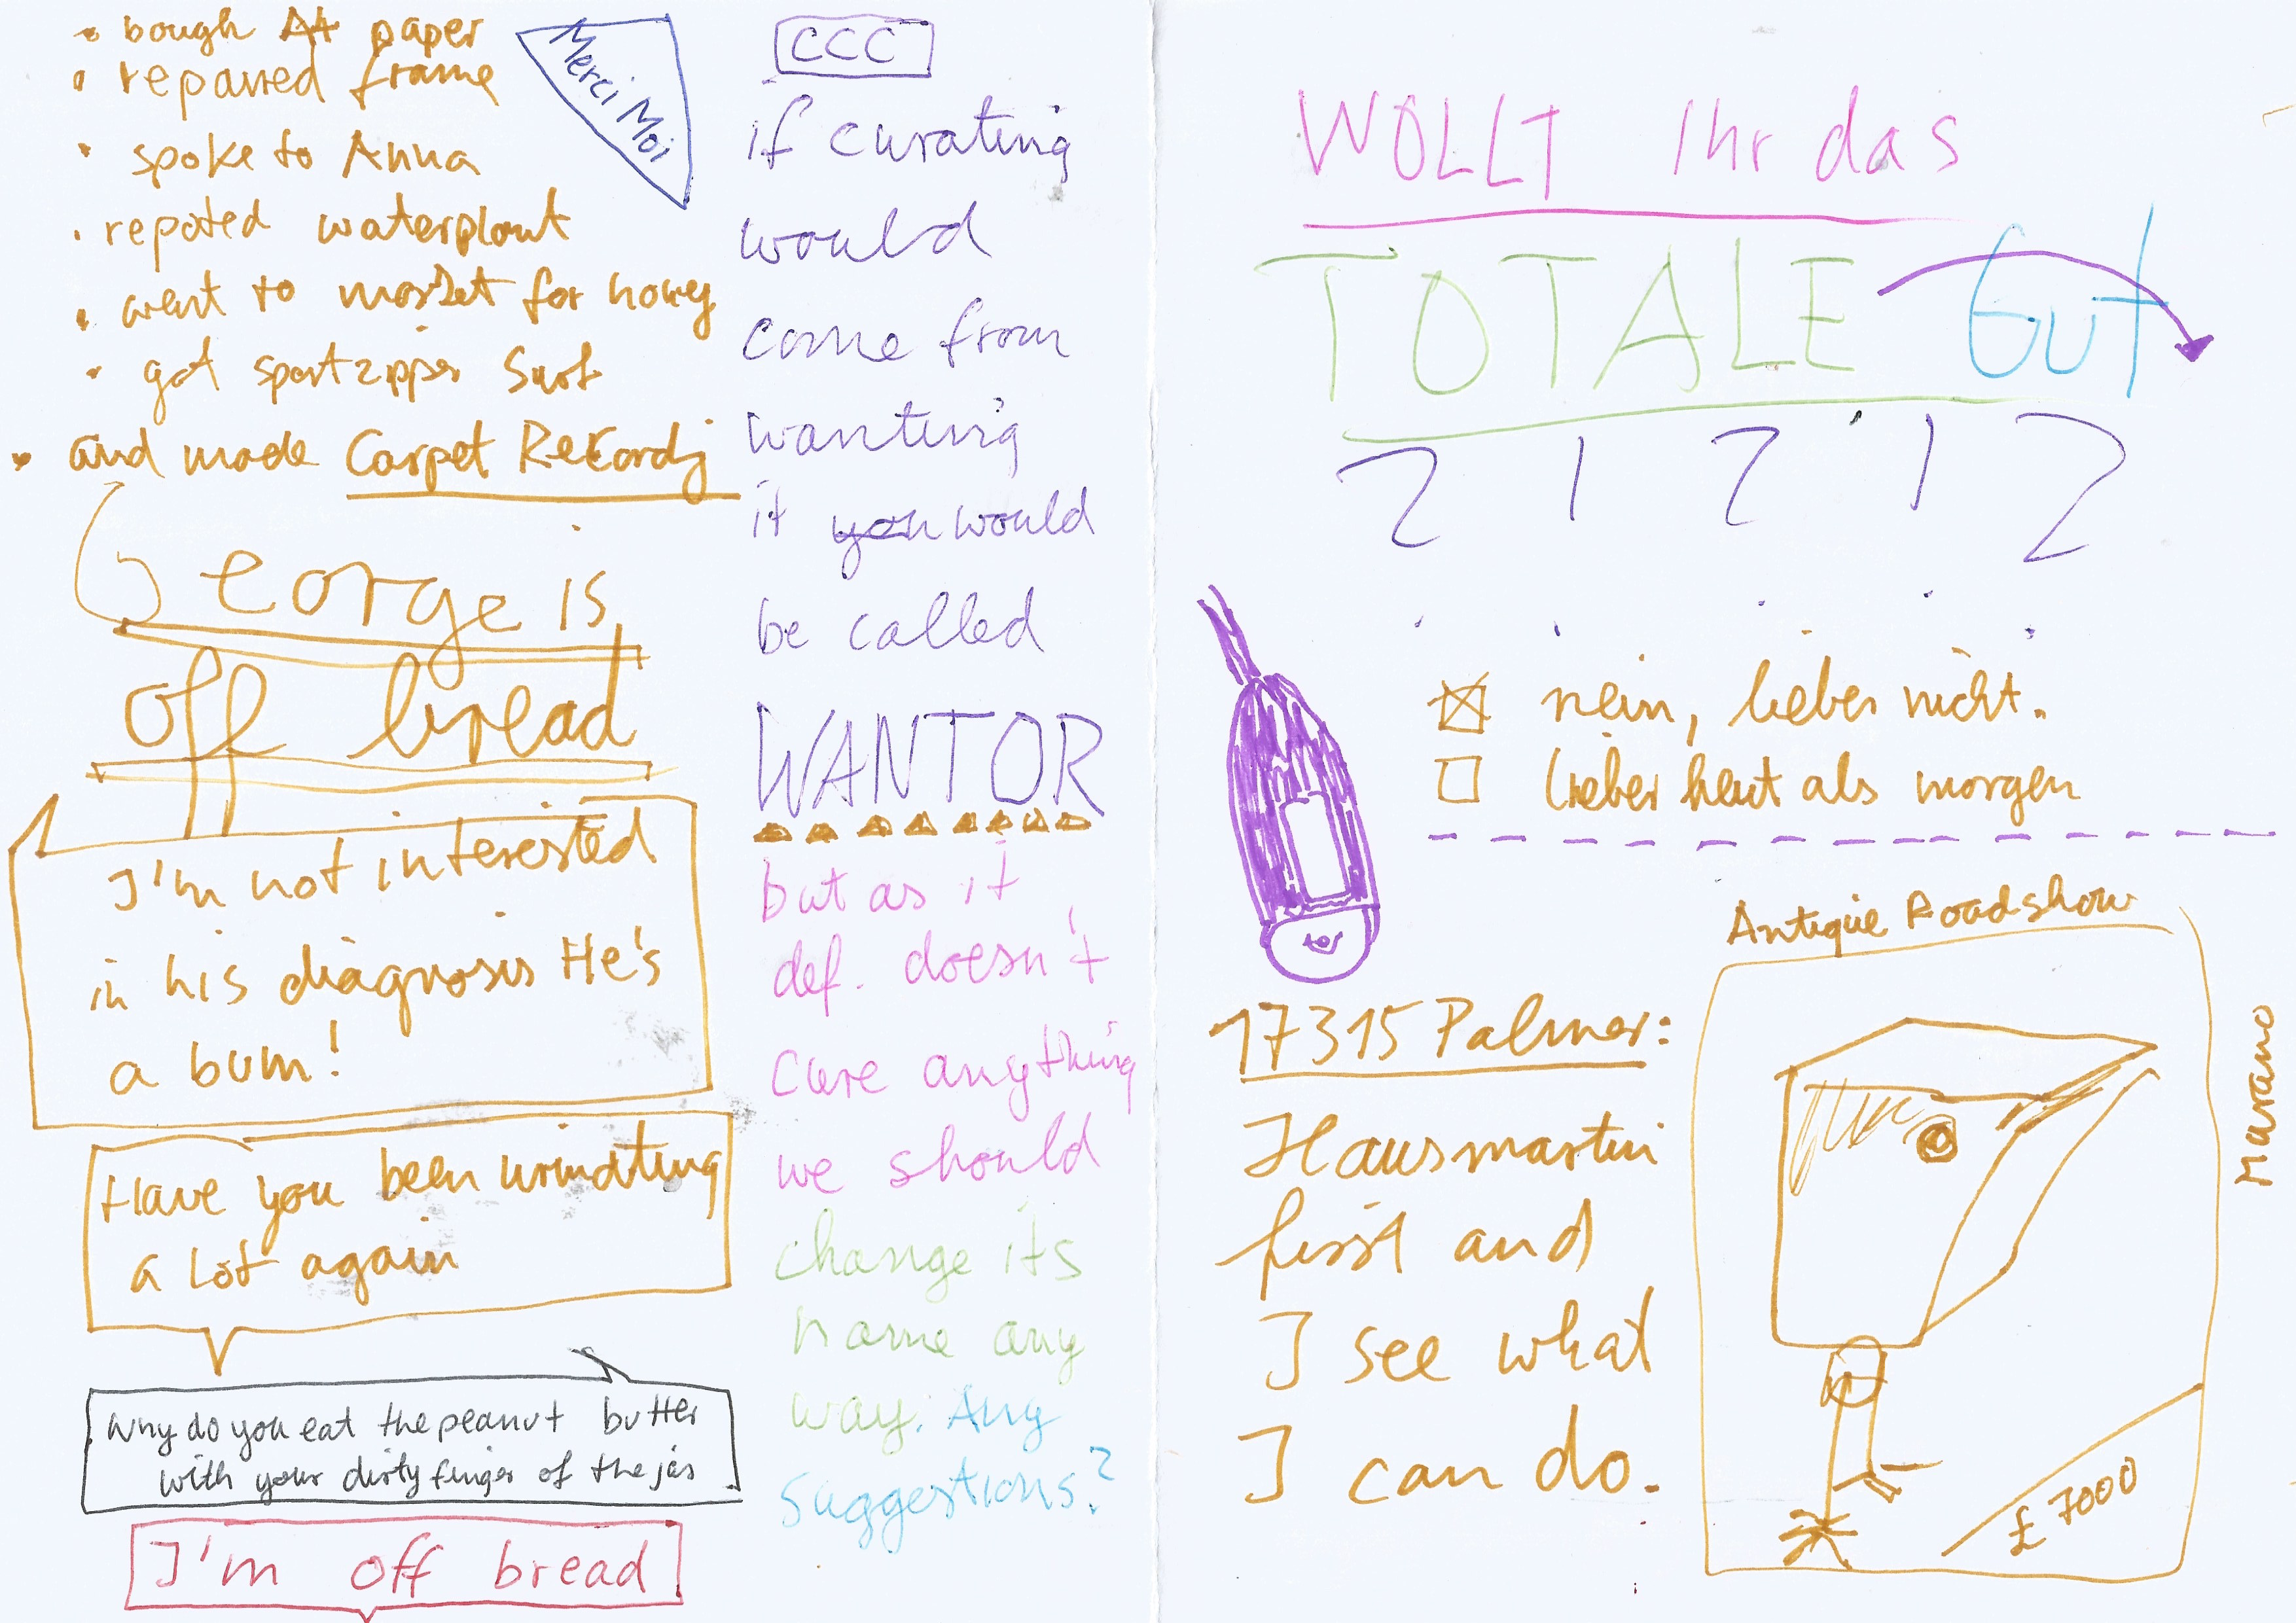 • bough A4 paper
• repaired frame
• spoke to Anna
• repoted waterplant
• went to market for honey
• got sportzipper Surf
• and made Carpet Recordj
Merci Moi
George is
off bread
I'm not interested
in his diagnosis He's
a bum!
Have you been urinating
a lot again
Why do you eat the peanut butter
with your dirty finger of the jar
I'm off bread
CCC
if curating
would
come from
wanting
it you would
be called
WANTOR
but as it
def. doesn't
cure anything
we should
change its
name any
way. Any
suggestions?
WOLLT Ihr das
TOTALE Gut
? ! ? ! ?
☒ nein, lieber nicht.
☐ lieber heut als morgen
17315 Palmer:
Hausmartin
first and
I see what
I can do.
Antique Roadshow
Murano
£ 7000